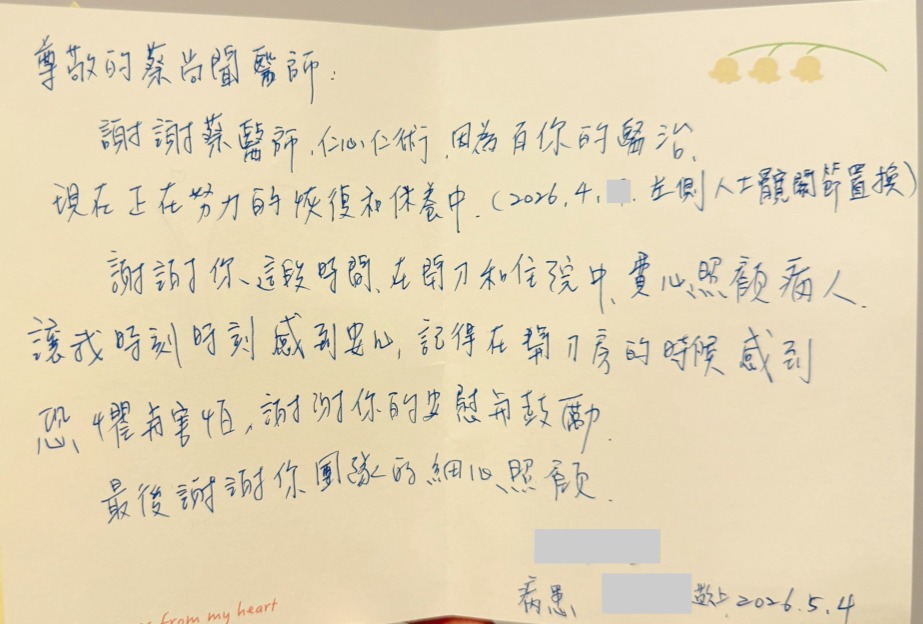 尊敬的蔡尚聞醫師:
謝謝蔡醫師,仁心仁術,因為有你的醫治,
現在正在努力的恢復和保養中.(2026.4. 左側人工髖關節置換)
謝謝你、這段時間、在開刀和住院中、費心照顧病人.
讓我時刻時刻感到安心,記得在開刀房的時候感到
恐懼與害怕,謝謝你的安慰與鼓勵.
最後謝謝你團隊的細心照顧.
病患 敬上 2026.5.4
from my heart